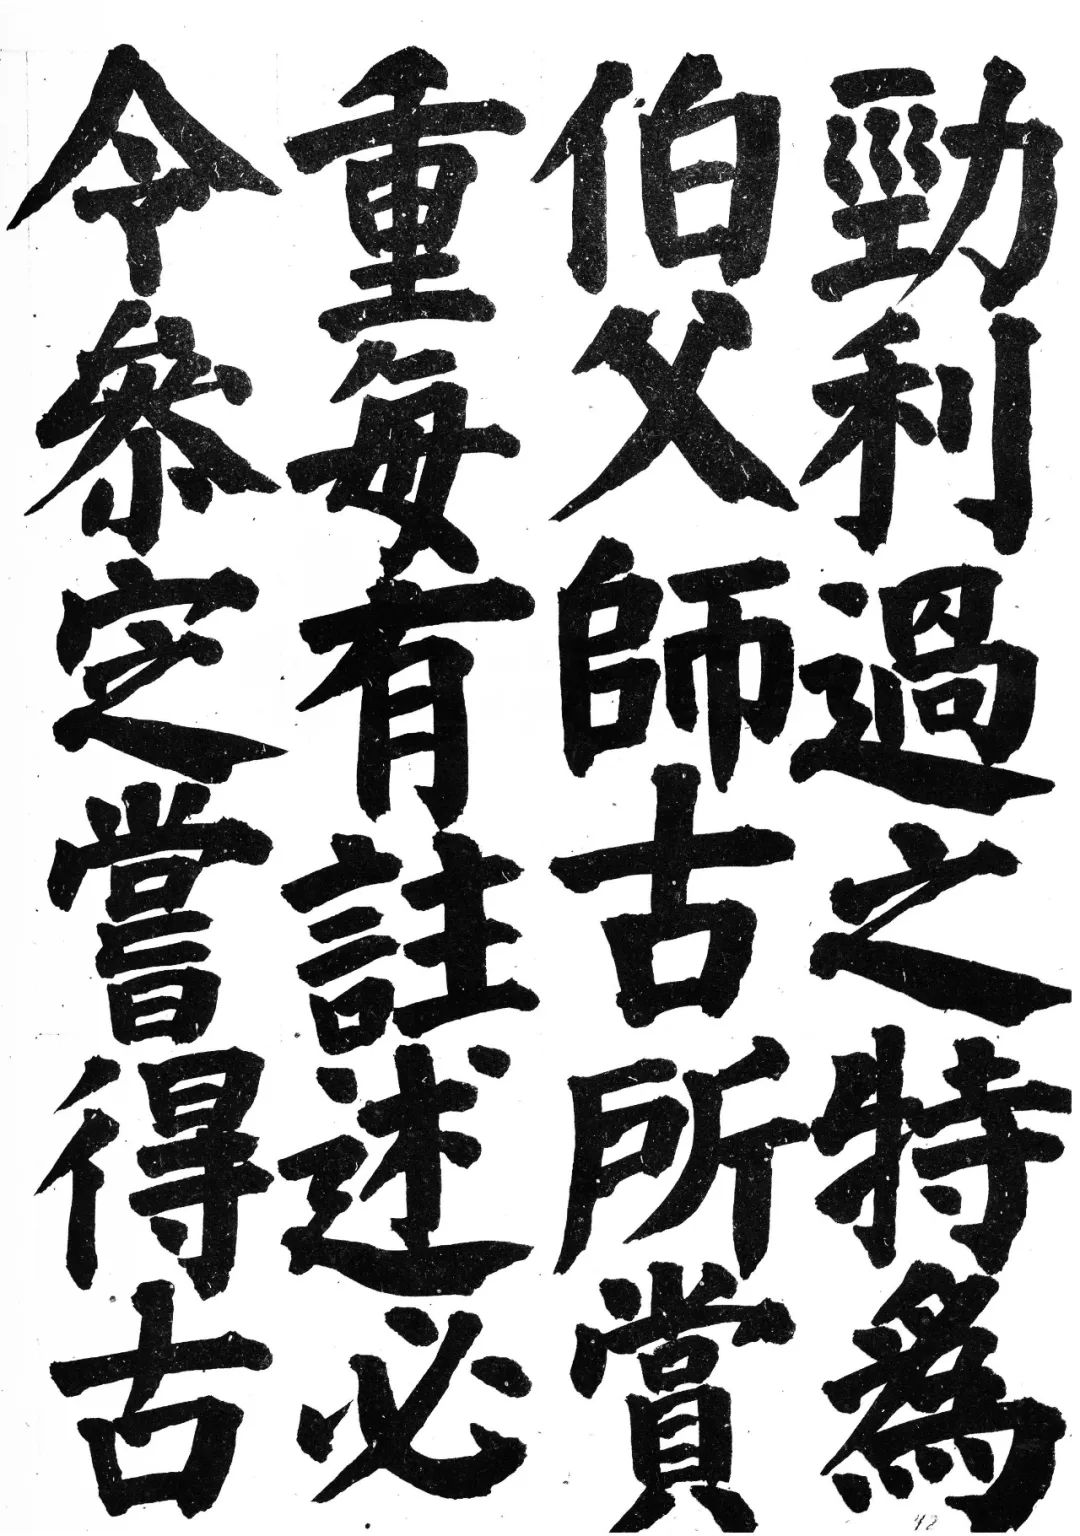 勁利過之特為
伯父師古所賞
重每有註述必
令參定嘗得古
42